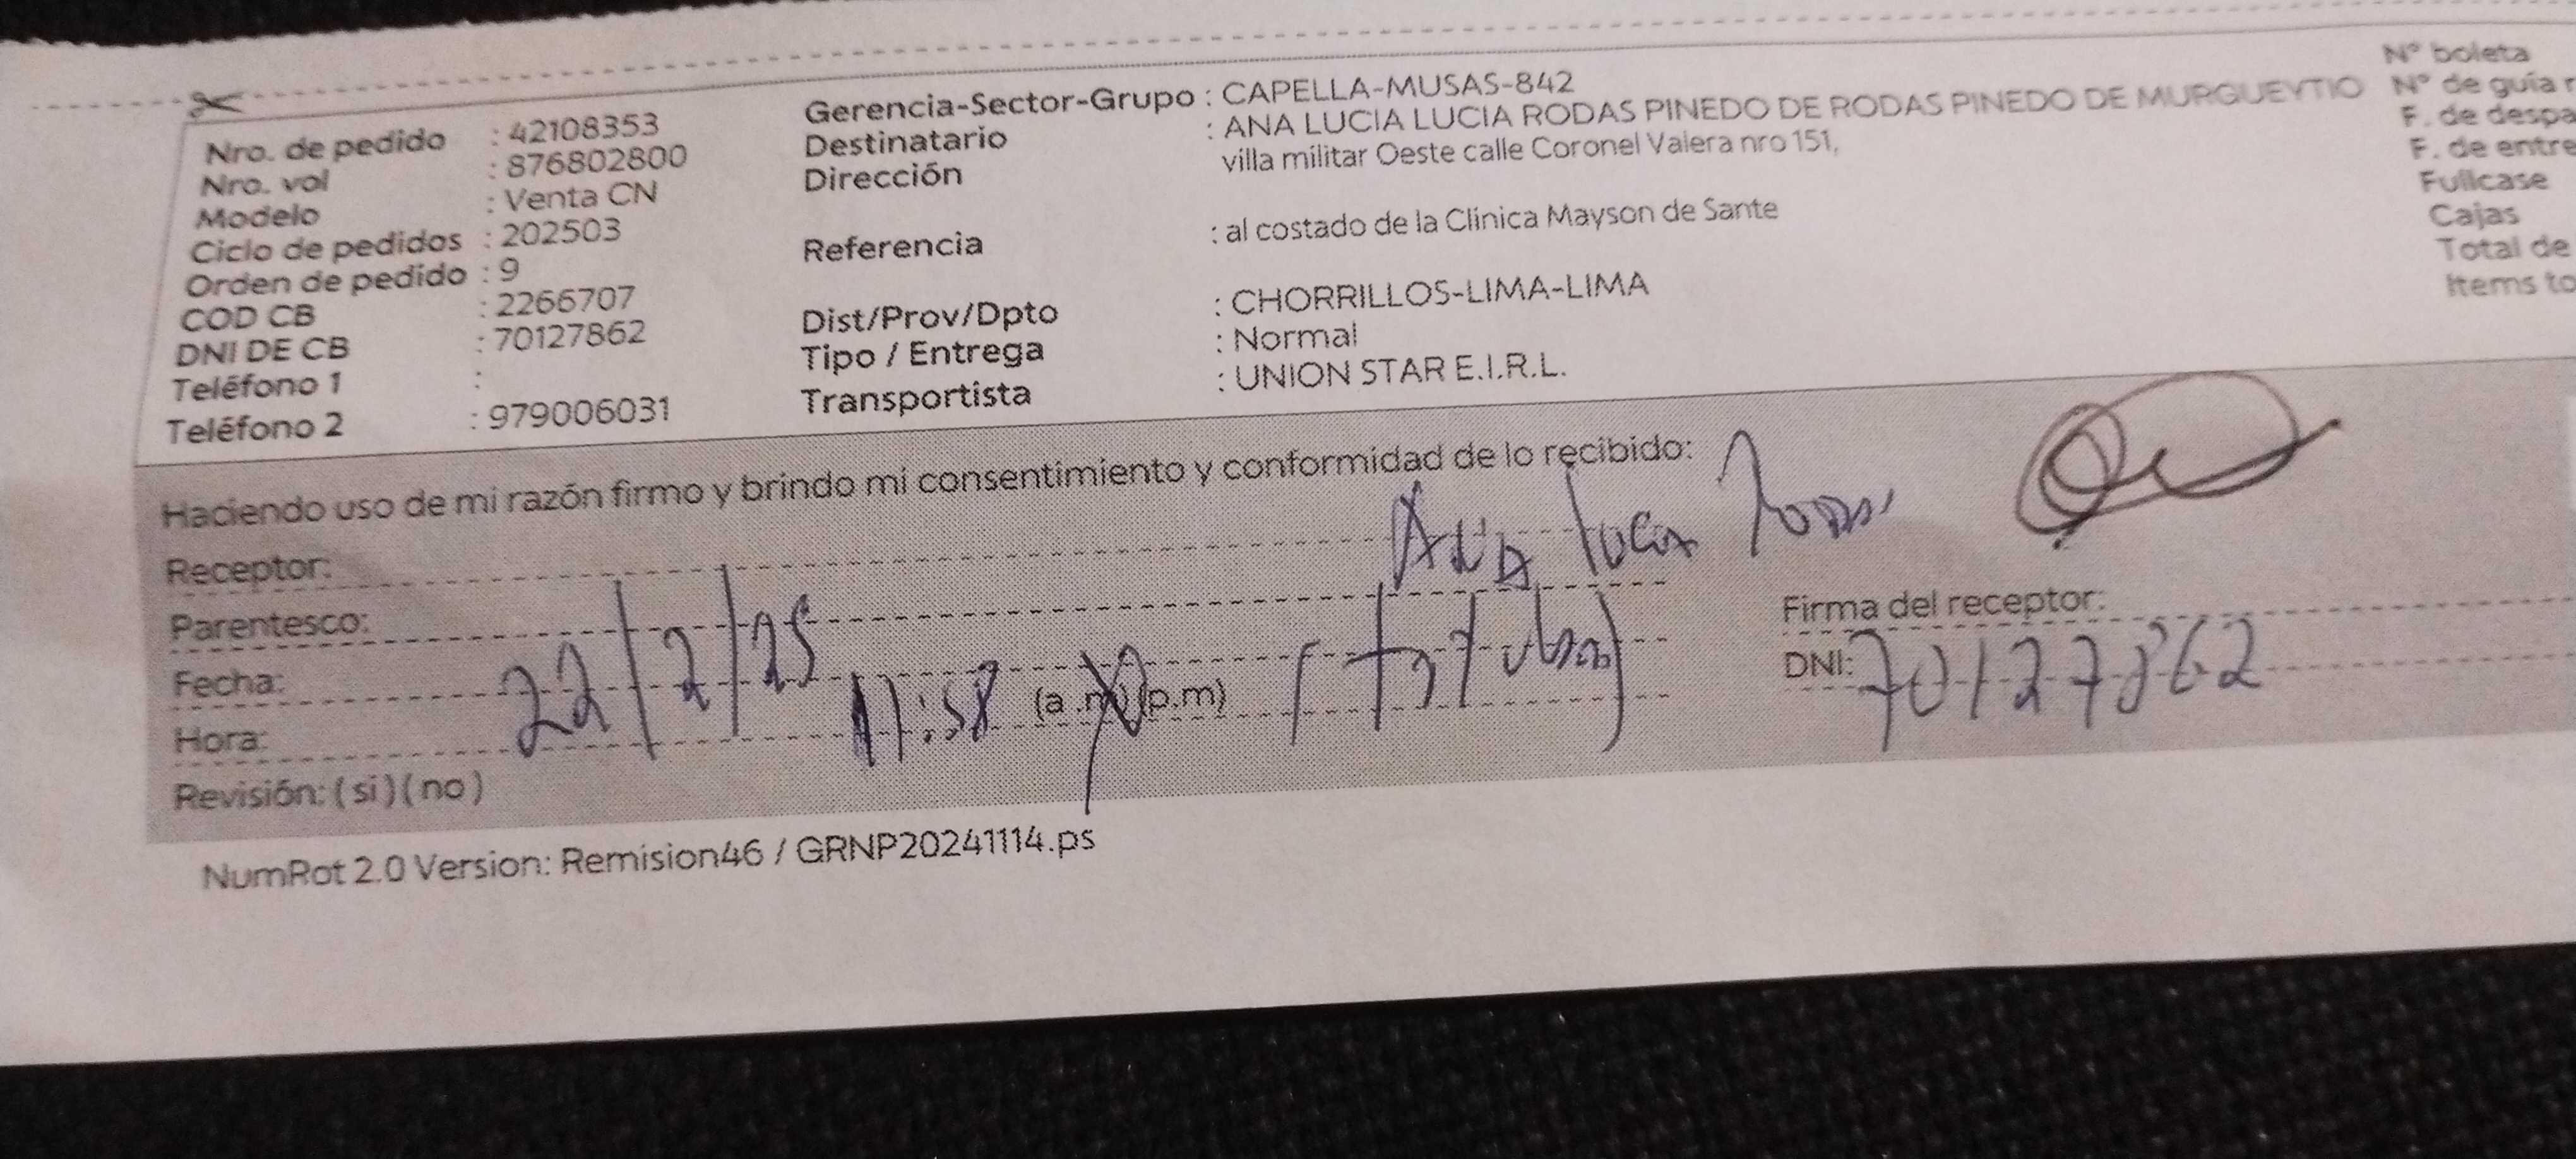 Nro. de pedido : 42108353
Nro. vol : 876802800
Modelo : Venta CN
Ciclo de pedidos : 202503
Orden de pedido : 9
COD CB : 2266707
DNI DE CB : 70127862
Teléfono 1 :
Teléfono 2 : 979006031
Gerencia-Sector-Grupo : CAPELLA-MUSAS-842
Destinatario : ANA LUCIA LUCIA RODAS PINEDO DE RODAS PINEDO DE MURGUEYTIO
Dirección villa militar Oeste calle Coronel Valera nro 151,
Referencia : al costado de la Clínica Mayson de Sante
Dist/Prov/Dpto : CHORRILLOS-LIMA-LIMA
Tipo / Entrega : Normal
Transportista : UNION STAR E.I.R.L.
N° boleta
N° de guía r
F. de despa
F. de entre
Fullcase
Cajas
Total de
Items to
Haciendo uso de mi razón firmo y brindo mi consentimiento y conformidad de lo recibido:
Receptor: Ana Rodas
Parentesco:
Fecha: 22/2/25
Hora: 11:58 (a.m) (p.m)
Revisión: ( si ) ( no )
Firma del receptor:
DNI: 70127862
NumRot 2.0 Version: Remision46 / GRNP20241114.ps